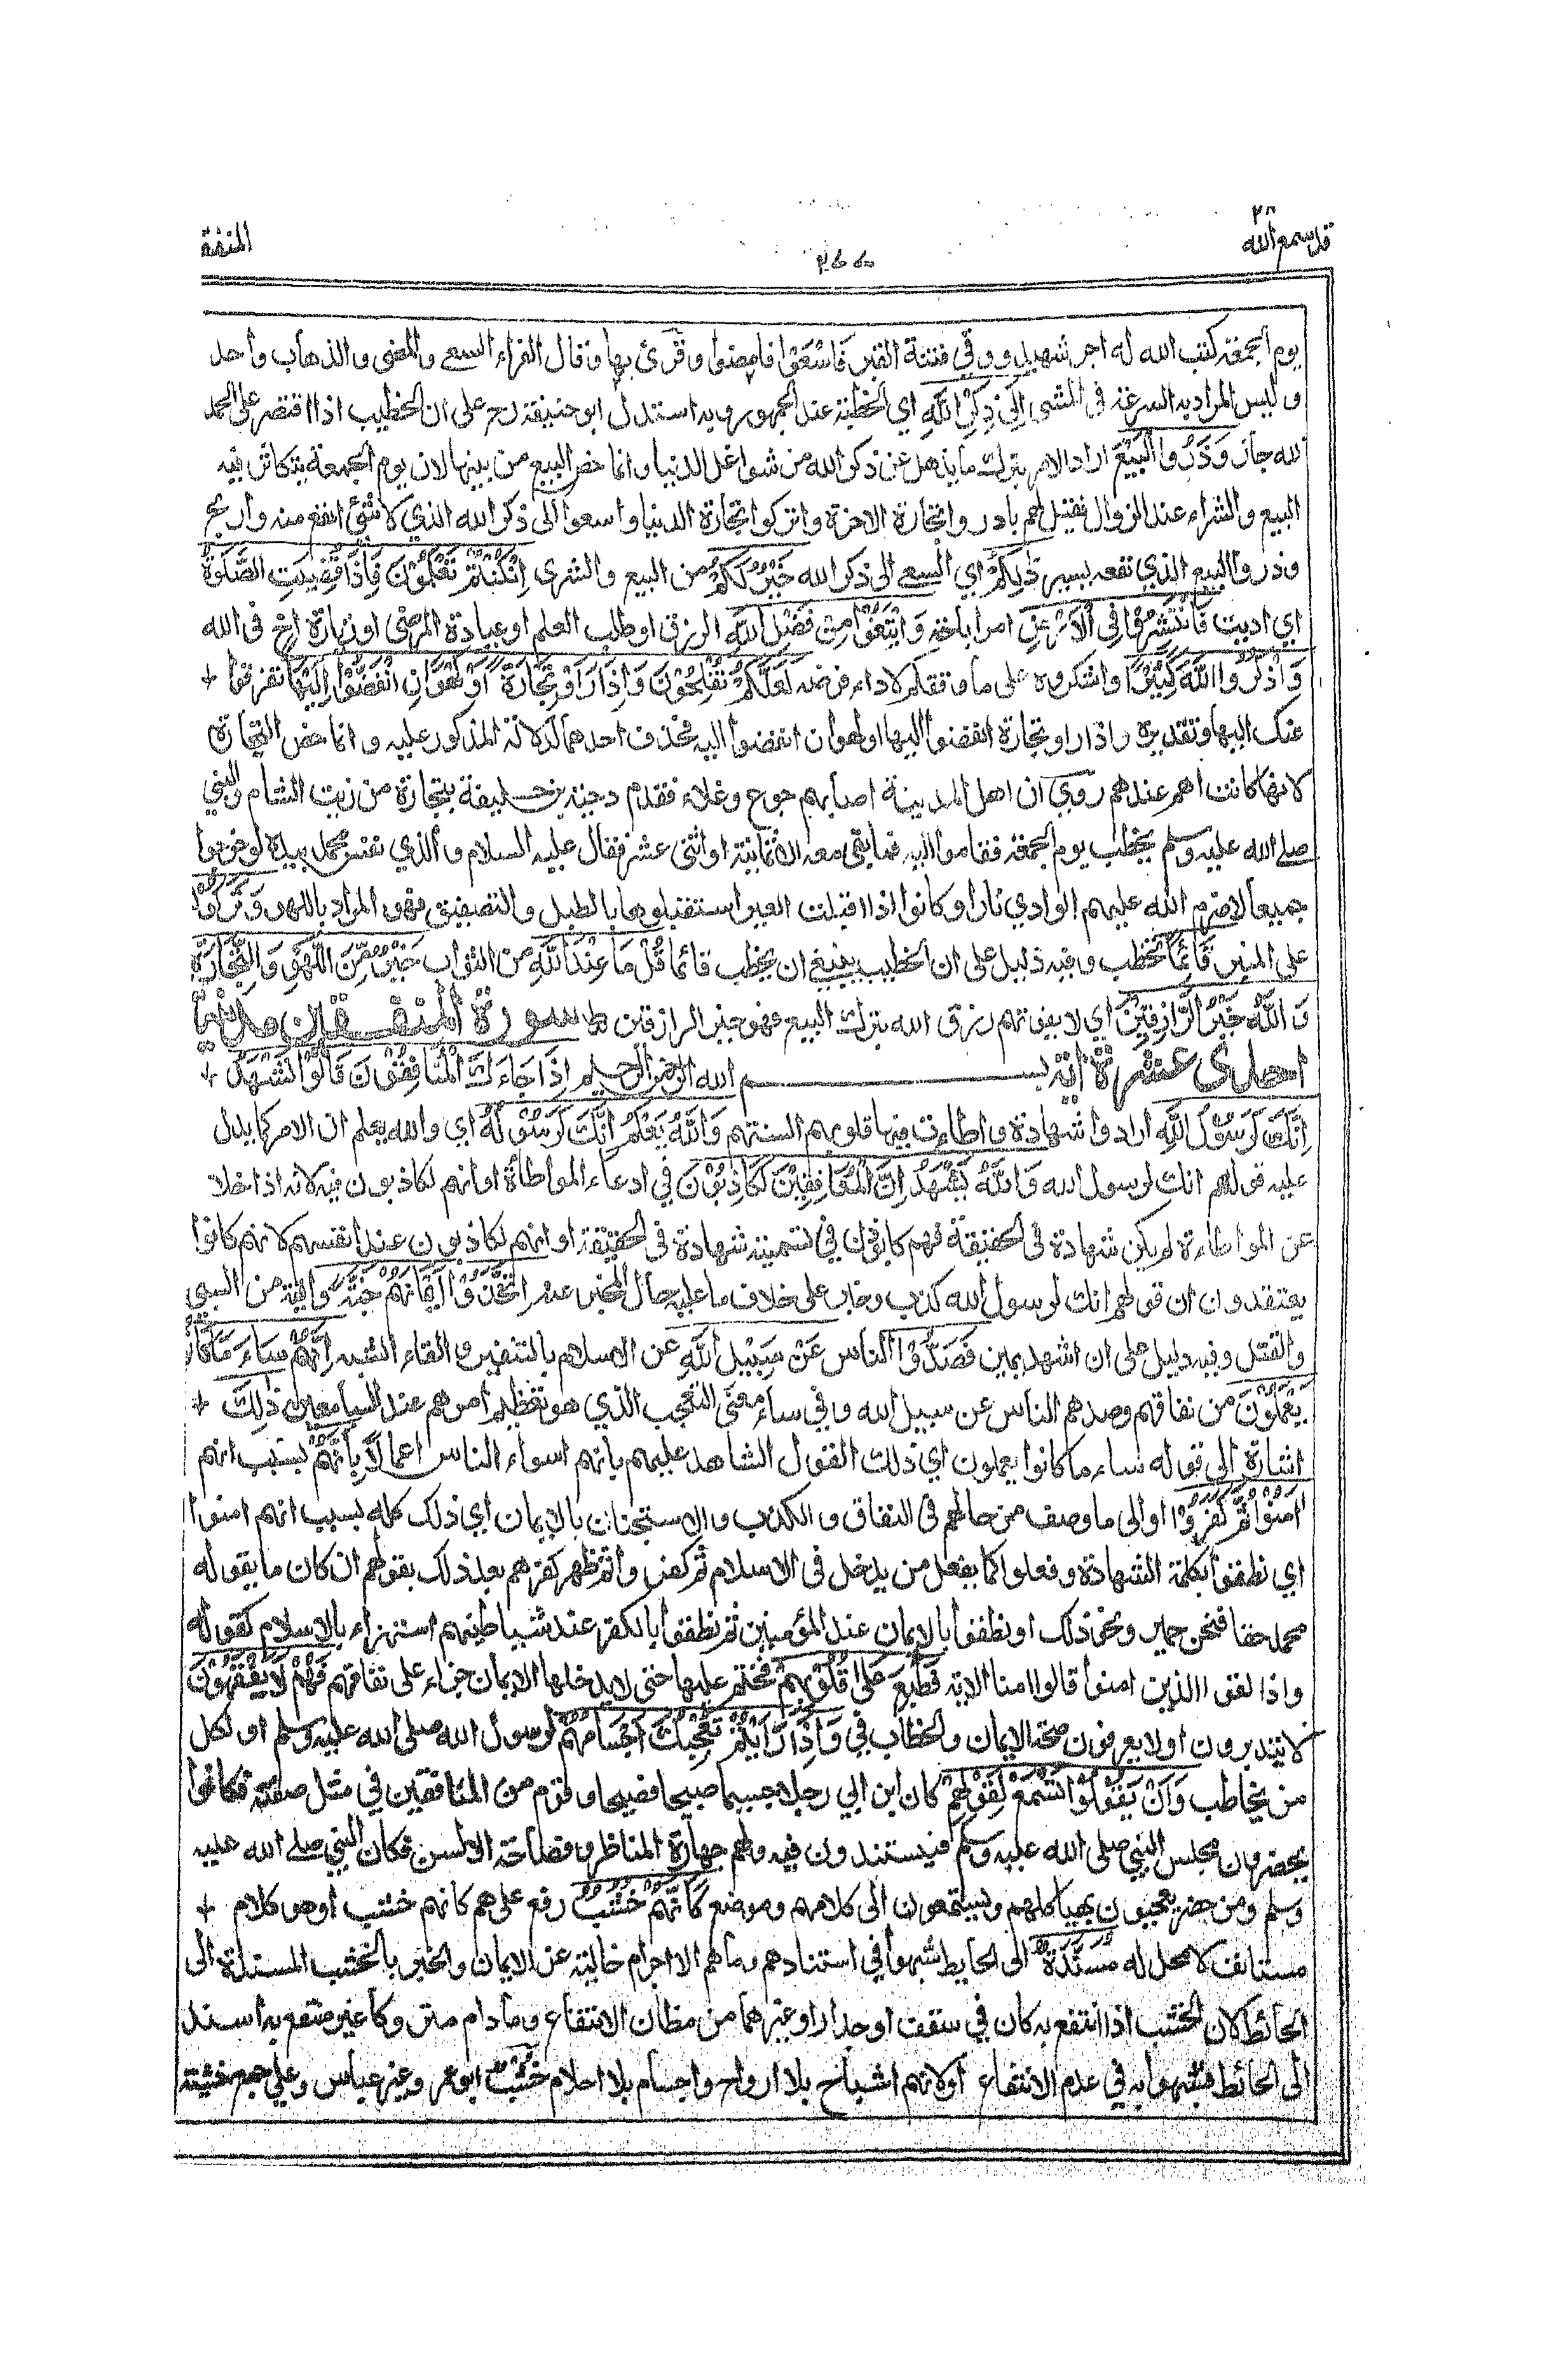 قد سمع الله ٢٨
٢٦٧
المنفقة
يوم الجمعة كتب الله له اجر شهيد ووقي فتنة القبر فَاسْعَوْا فامضوا وقرئ بها وقال الفراء السعي والمضي والذهاب واحد
وليس المراد به السرعة في المشي اِلٰى ذِكْرِ اللّٰهِ اي الخطبة عند الجمهور وبه استدل ابو حنيفة رح على ان الخطيب اذا اقتصر على الحمد
لله جاز وَذَرُوا الْبَيْعَ اراد الامر بترك ما يذهل عن ذكر الله من شواغل الدنيا وانما خص البيع من بينها لان يوم الجمعة يتكاثر فيه
البيع والشراء عند الزوال فقيل لهم بادروا تجارة الاخرة واتركوا تجارة الدنيا واسعوا الى ذكر الله الذي لا شئ انفع منه واربح
وذروا البيع الذي نفعه يسير ذٰلِكُمْ اي السعي الى ذكر الله خَيْرٌ لَّكُمْ من البيع والشرى اِنْ كُنْتُمْ تَعْلَمُوْنَ فَاِذَا قُضِيَتِ الصَّلٰوةُ
اي اديت فَانْتَشِرُوْا فِي الْاَرْضِ امر اباحة وَابْتَغُوْا مِنْ فَضْلِ اللّٰهِ الرزق او طلب العلم او عيادة المرضى او زيارة اخ في الله
وَاذْكُرُوا اللّٰهَ كَثِيْرًا واشكروه على ما وفقكم لاداء فرضه لَعَلَّكُمْ تُفْلِحُوْنَ وَاِذَا رَاَوْا تِجَارَةً اَوْ لَهْوَا نِ انْفَضُّوْا اِلَيْهَا تفرقوا
عنك اليها وتقديره واذا راوا تجارة انفضوا اليها او لهوا انفضوا اليه فحذف احدهما لدلالة المذكور عليه وانما خص التجارة
لانها كانت اهم عندهم روي ان اهل المدينة اصابهم جوع وغلاء فقدم دحية بن خليفة بتجارة من زيت الشام والنبي
صلى الله عليه وسلم يخطب يوم الجمعة فقاموا اليه فما بقي معه الا ثمانية او اثنى عشر فقال عليه السلام والذي نفس محمد بيده لو خرجوا
جميعا لاضرم الله عليهم الوادي نارا وكانوا اذا اقبلت العير استقبلوها بالطبل والتصفيق فهو المراد باللهو وَتَرَكُوْكَ
على المنبر قَآئِمًا تخطب وفيه دليل على ان الخطيب ينبغي ان يخطب قائما قُلْ مَا عِنْدَ اللّٰهِ من الثواب خَيْرٌ مِّنَ اللَّهْوِ وَالتِّجَارَةِ
وَاللّٰهُ خَيْرُ الرَّازِقِيْنَ اي لا يفوتهم رزق الله بترك البيع فهو خير الرازقين سورة المنفقين مدنية
احدى عشرة اية بسم الله الرحمن الرحيم اِذَا جَآءَكَ الْمُنَافِقُوْنَ قَالُوْا نَشْهَدُ
اِنَّكَ لَرَسُوْلُ اللّٰهِ ارادوا شهادة واطاءت فيها قلوبهم السنتهم وَاللّٰهُ يَعْلَمُ اِنَّكَ لَرَسُوْلُهُ اي والله يعلم ان الامر كما يدل
عليه قولهم انك لرسول الله وَاللّٰهُ يَشْهَدُ اِنَّ الْمُنَافِقِيْنَ لَكَاذِبُوْنَ في ادعاء المواطاة او انهم لكاذبون فيه لانه اذا خلا
عن المواطاءة لم يكن شهادة في الحقيقة فهم كاذبون في تسميته شهادة في الحقيقة او انهم لكاذبون عند انفسهم لانهم كانوا
يعتقدون ان قولهم انك لرسول الله كذب وخبر على خلاف ما عليه حال المخبر عنه اِتَّخَذُوْا اَيْمَانَهُمْ جُنَّةً وقاية من السبي
والقتل وفيه دليل على ان اشهد يمين فَصَدُّوْا الناس عَنْ سَبِيْلِ اللّٰهِ عن الاسلام بالتنفير والقاء الشبه اِنَّهُمْ سَآءَ مَا كَانُوْا
يَعْمَلُوْنَ من نفاقهم وصدهم الناس عن سبيل الله وفي ساء معنى التعجب الذي هو تعظيم امرهم عند السامعين ذٰلِكَ
اشارة الى قوله ساء ما كانوا يعملون اي ذلك القول الشاهد عليهم بانهم اسواء الناس اعمالا بِاَنَّهُمْ بسبب انهم
اٰمَنُوْا ثُمَّ كَفَرُوْا او الى ما وصف من حالهم في النفاق والكذب والاستجنان بالايمان اي ذلك كله بسبب انهم امنوا
اي نطقوا بكلمة الشهادة وفعلوا كما يفعل من يدخل في الاسلام ثم كفروا ثم ظهر كفرهم بعد ذلك بقولهم ان كان ما يقوله
محمد حقا فنحن حمير ونحو ذلك او نطقوا بالايمان عند المؤمنين ثم نطقوا بالكفر عند شياطينهم استهزاء بالاسلام كقوله
واذا لقوا الذين امنوا قالوا امنا الاية فَطُبِعَ عَلٰى قُلُوْبِهِمْ فختم عليها حتى لا يدخلها الايمان جزاء على نفاقهم فَهُمْ لَا يَفْقَهُوْنَ
لا يتدبرون او لا يعرفون صحة الايمان والخطاب في وَاِذَا رَاَيْتَهُمْ تُعْجِبُكَ اَجْسَامُهُمْ لرسول الله صلى الله عليه وسلم او لكل
من يخاطب وَاِنْ يَقُوْلُوْا تَسْمَعْ لِقَوْلِهِمْ كان ابن ابي رجلا جسيما صبيحا فصيحا وقوم من المنافقين في مثل صفته فكانوا
يحضرون مجلس النبي صلى الله عليه وسلم فيستندون فيه ولهم جهارة المناظر وفصاحة الالسن فكان النبي صلى الله عليه
وسلم ومن حضر يعجبون بهياكلهم ويستمعون الى كلامهم وموضع كَاَنَّهُمْ خُشُبٌ رفع على هم كانهم خشب او هو كلام
مستانف لا محل له مُسَنَّدَةٌ الى الحايط شبهوا في استنادهم وما هم الا اجرام خالية عن الايمان والخير بالخشب المسندة الى
الحائط لان الخشب اذا انتفع به كان في سقف او جدار او غيرهما من مظان الانتفاع وما دام متروكا غير منتفع به اسند
الى الحائط فشبهوا به في عدم الانتفاع او لانهم اشباح بلا ارواح واجسام بلا احلام خُشْبٌ ابو عمرو وغير عباس وعلي جمع خشبة